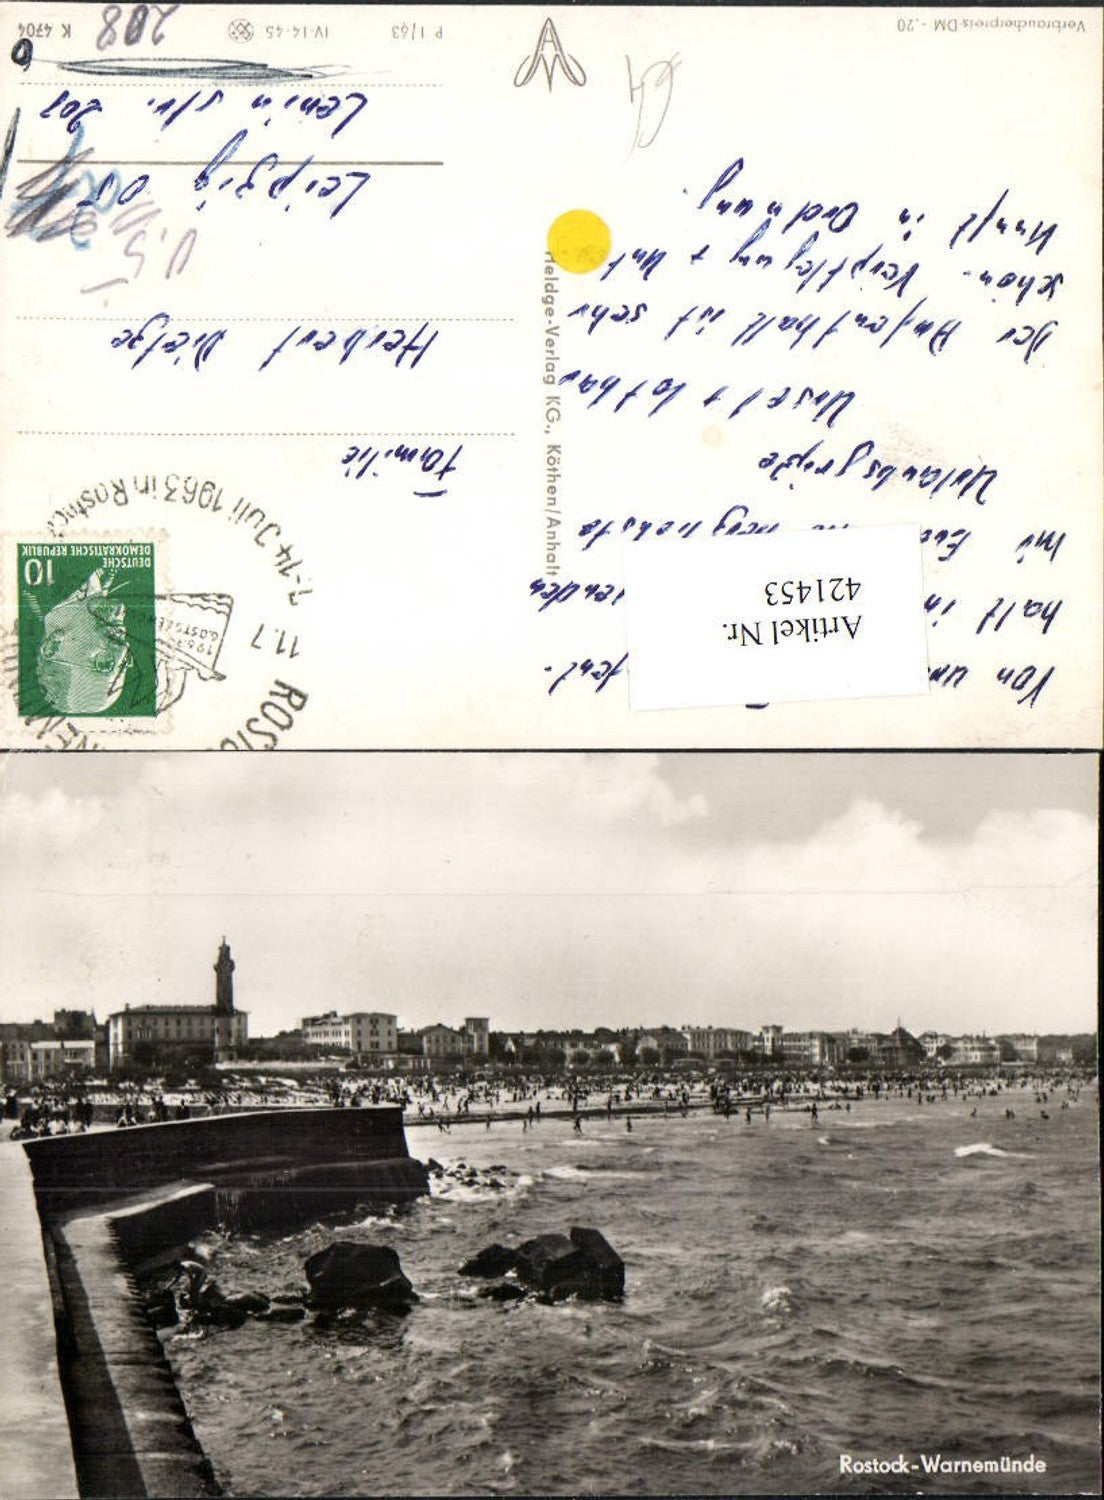 Von un
halt in enden
wir Eu
Urlaubsgrüße
Ursel + Lothar
Der Aufenthalt ist sehr
schön. Verpflegung + Unter
kunft in Ordnung.
64
Artikel Nr.
421453
Verbraucherpreis-DM -.20
Heldge-Verlag KG., Köthen/Anhalt
DEUTSCHE
DEMOKRATISCHE REPUBLIK
10
11.7
7.-14. Juli 1963 in Rostock
1963
OSTSEE
Familie
Herbert Dietze
Leipzig O5
Lenin str. 208
O5
P 1/63 IV-14-45 K 4704
208
Rostock-Warnemünde